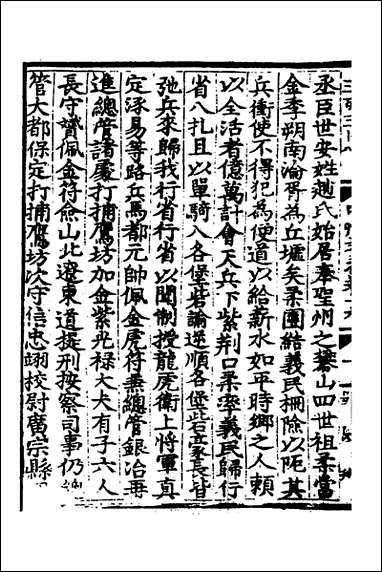 丞臣世安姓趙氏始居蔚聖州之礬山四世祖柔當
金季朔南淪胥為丘墟矣柔團結義民柵險以阨其
兵衝使不得犯為便道以給薪水如平時鄉之人賴
以全活者億萬計會天兵下紫荆口柔率義民歸行
省八扎且以單騎入各堡砦諭逆順各堡砦豪長皆
弛兵來歸我行省行省以聞制授龍虎衛上將軍真
定涿易等路兵馬都元帥佩金虎符兼總管銀冶再
進總管諸處打捕鷹坊加金紫光祿大夫有子六人
長守贇佩金符燕山北遼東道提刑按察司事仍總
管大都保定打捕鷹坊次守信忠翊校尉廣宗縣